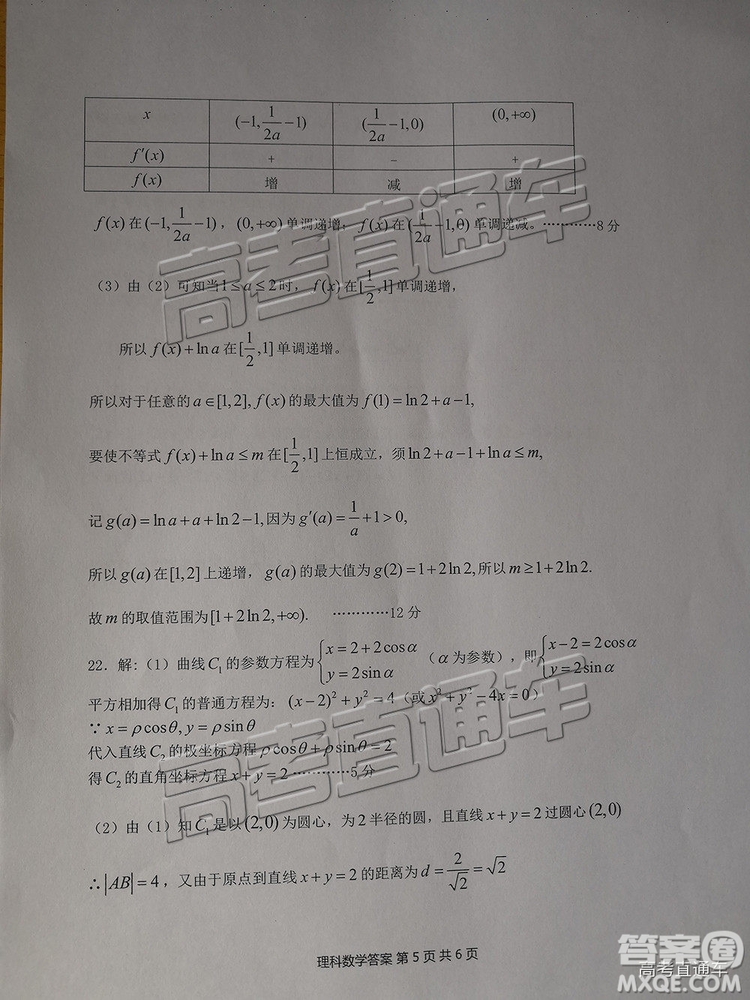 x (-1, 1/2a -1) (1/2a -1, 0) (0, +∞)
f′(x) + − +
f(x) 增 减 增
f(x)在(-1, 1/2a -1)，(0,+∞)单调递增；f(x)在(1/2a -1, 0)单调递减。…………8分
（3）由（2）可知当1≤a≤2时，f(x)在[1/2,1]单调递增，
所以f(x)+ln a在[1/2,1]单调递增。
所以对于任意的a∈[1,2], f(x)的最大值为f(1)=ln2+a-1,
要使不等式f(x)+ln a≤m在[1/2,1]上恒成立，须ln2+a-1+ln a≤m,
记g(a)=ln a+a+ln2-1,因为g′(a)=1/a+1>0,
所以g(a)在[1,2]上递增，g(a)的最大值为g(2)=1+2ln2,所以m≥1+2ln2.
故m的取值范围为[1+2ln2,+∞). …………12分
22．解:（1）曲线C₁的参数方程为{x=2+2cosα y=2sinα（α为参数），即{x-2=2cosα y=2sinα
平方相加得C₁的普通方程为：(x-2)²+y²=4（或x²+y²-4x=0）
∵x=ρcosθ, y=ρsinθ
代入直线C₂的极坐标方程ρcosθ+ρsinθ=2
得C₂的直角坐标方程x+y=2…………5分
（2）由（1）知C₁是以(2,0)为圆心，为2半径的圆，且直线x+y=2过圆心(2,0)
∴|AB|=4，又由于原点到直线x+y=2的距离为d=2/√2=√2
理科数学答案 第5页共6页
高考直通车
高考直通车
高考直通车
答案圈
高考直通车
MXQE.COM